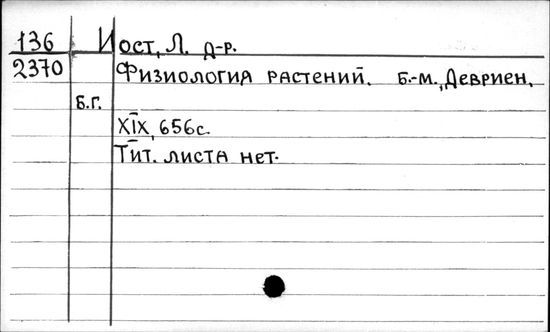 136 Иост, Л. д-р.
2370 Физиология растений. Б.-м., Девриен,
Б.г.
XIX, 656с.
Тит. листа нет.